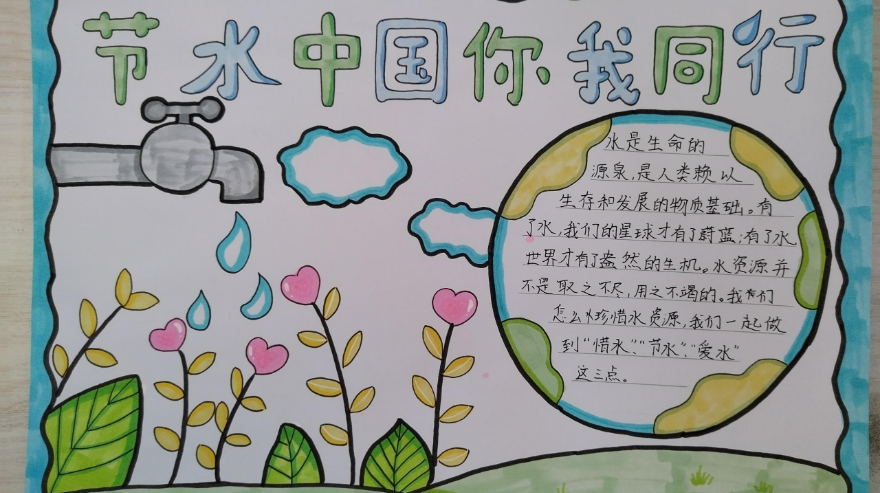 节水中国你我同行
水是生命的
源泉,是人类赖以
生存和发展的物质基础。有
了水,我们的星球才有了蔚蓝;有了水
世界才有了盎然的生机。水资源并
不是取之不尽,用之不竭的。我们
怎么珍惜水资源,我们一起做
到“惜水”“节水”“爱水”
这三点。